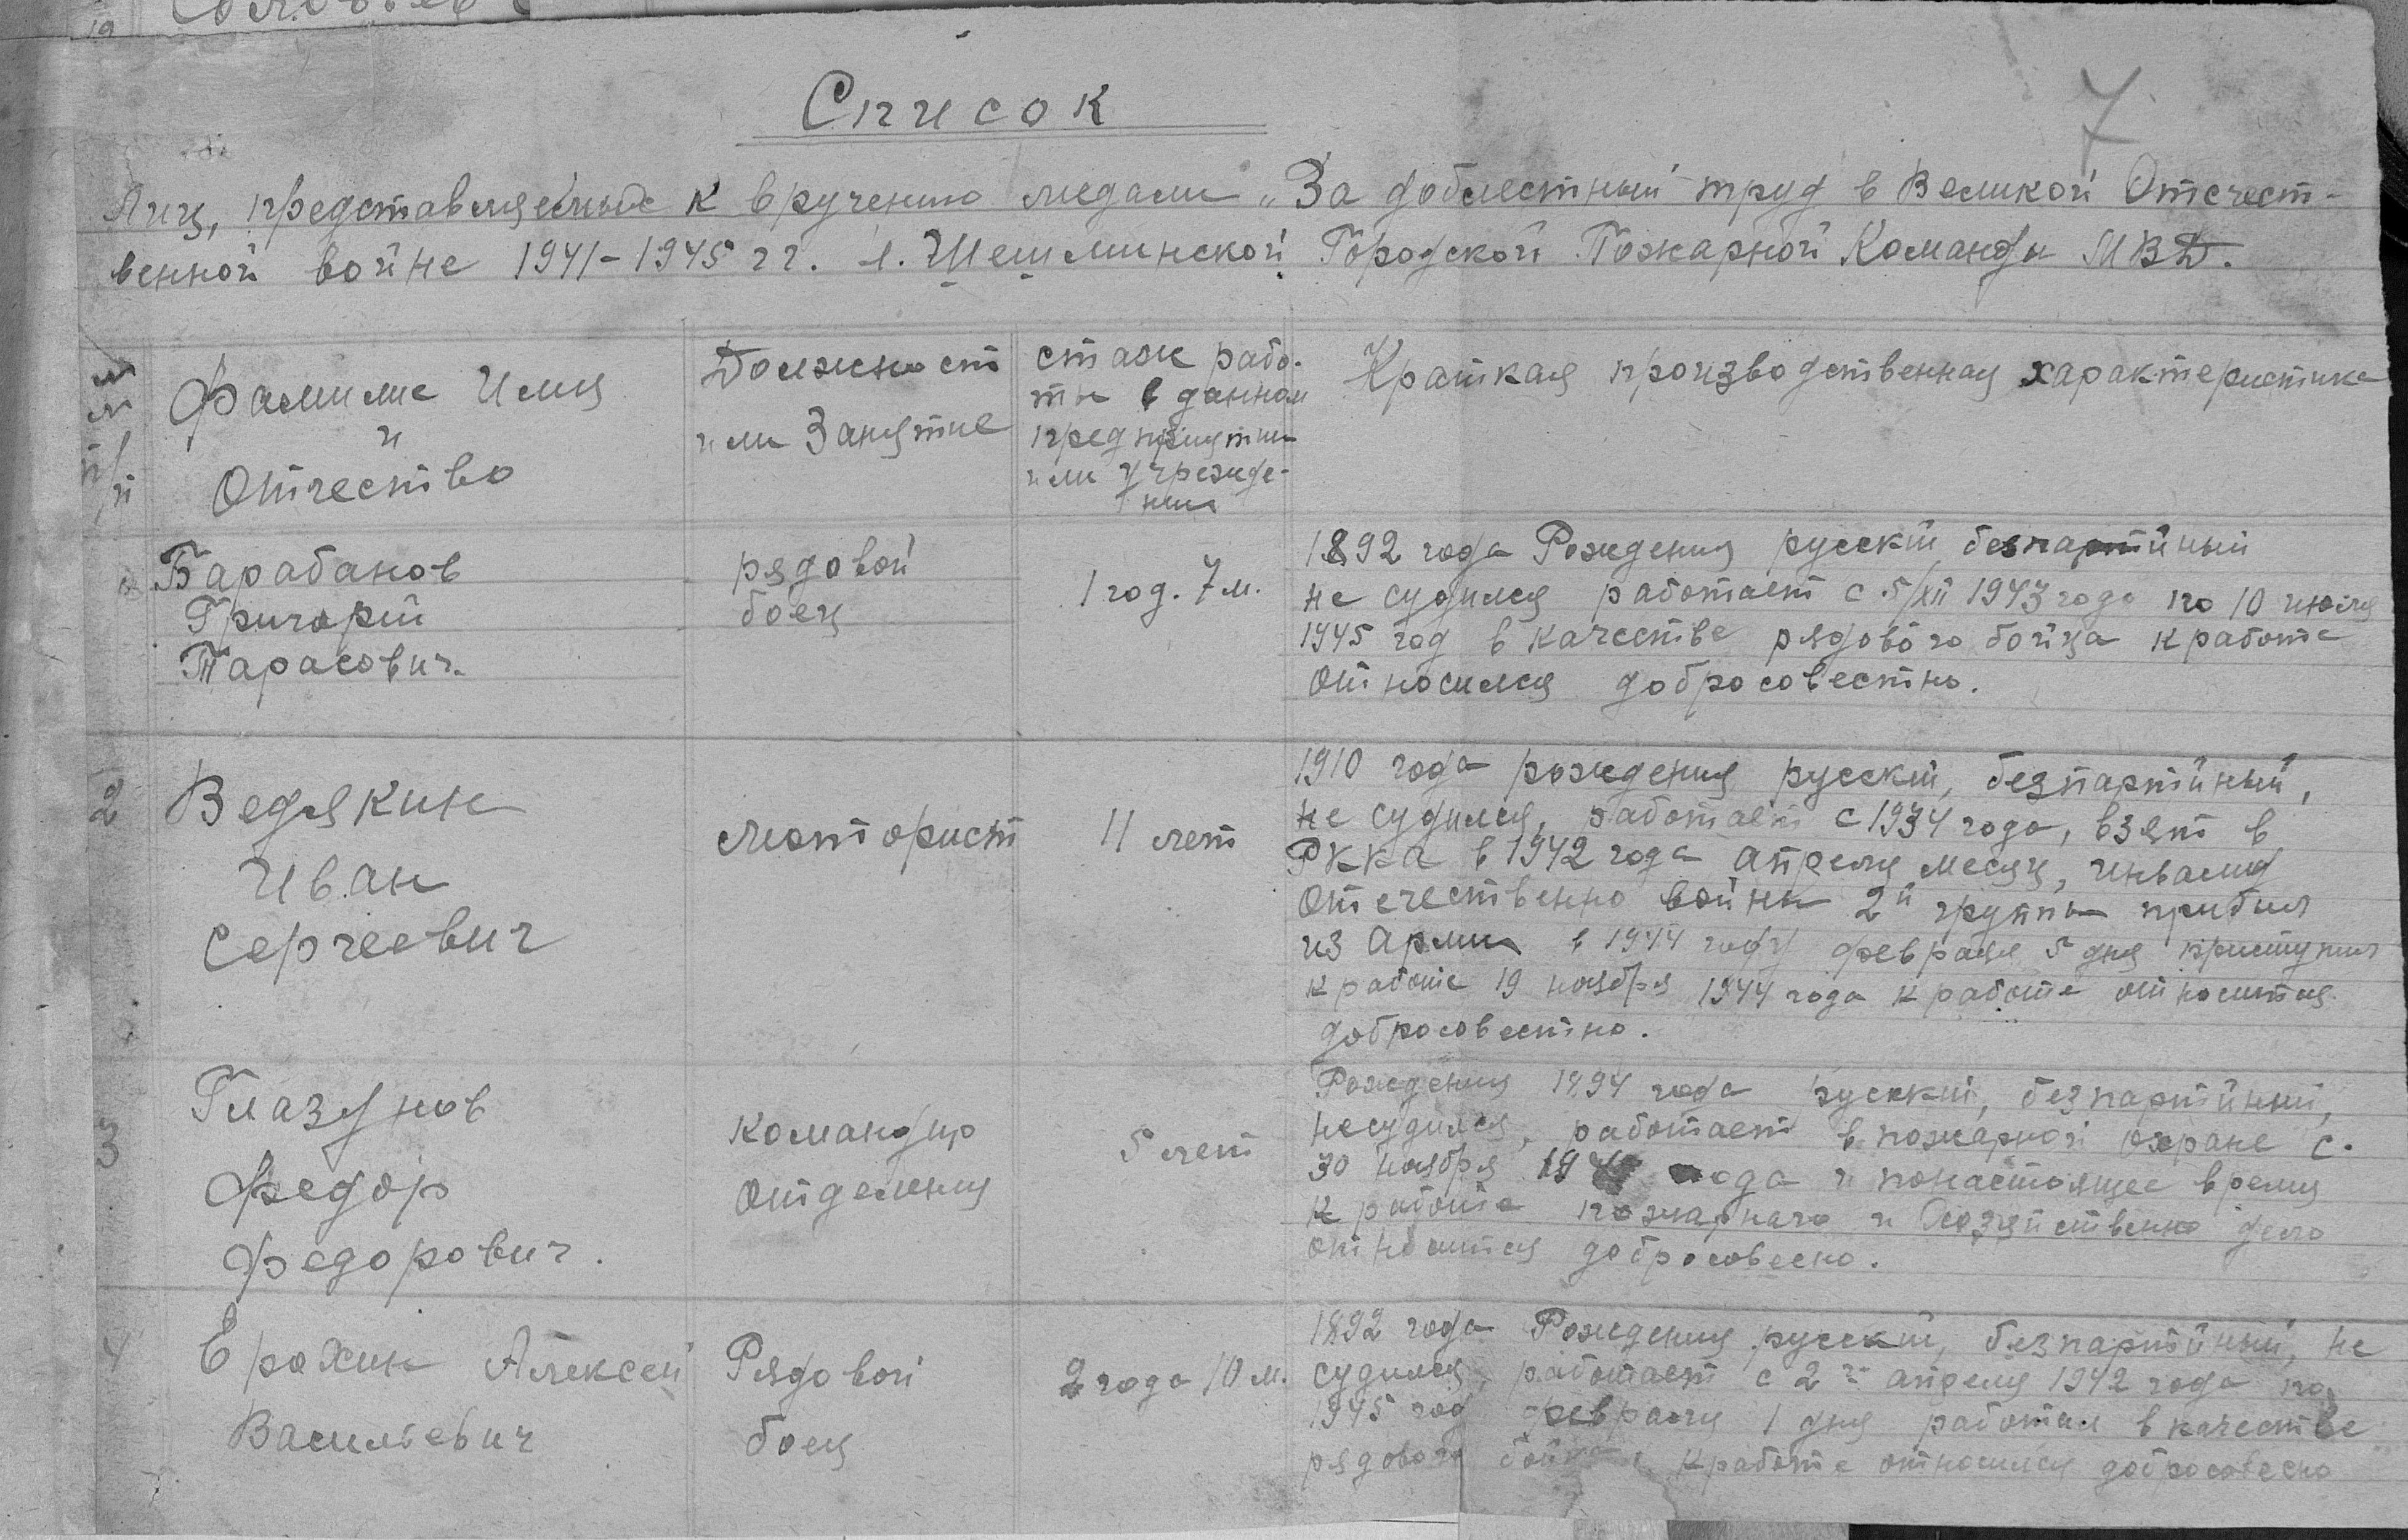 19
7
Список
Лиц, представляемые к вручению медали „За доблестный труд в Великой Отечест-
венной войне 1941-1945 гг. 1. Шешминской Городской Пожарной Команды МВД.
п/п
Фамилие Имя
и
Отчество
Должност
или Занятие
стаж рабо-
ты в данном
предприятии
или учрежде-
нии
Краткая производственная характеристика
Барабанов
Григорий
Тарасович.
рядовой
боец
1 год. 7 м.
1892 года Рождения русский безпартийный
не судился работает с 5/XII 1943 года по 10 июля
1945 год в качестве рядового бойца к работе
относился добросовестно.
2
Ведякин
Иван
Сергеевич
моторист
11 лет
1910 года рождения русский, безпартийный,
не судился, работает с 1934 года, взят в
РККА в 1942 года апреля месяц, инвалид
Отечественно войны 2й групы прибыл
из Армии в 1944 году февраля 5 дня приступил
к работе 19 ноября 1944 года к работе относится
добросовестно.
3
Глазунов
Федор
Федорович.
командир
отделения
5 лет
Рождения 1894 года русский, безпартийный,
несудился, работает в пожарной охране с.
30 ноября года и понастоящее время
к работе пожарнаго и Хозяйственно дело
относится добросовесно.
4
Ерохин Алексей
Васильевич
Рядовой
боец
2 года 10 м.
1892 года Рождения русский, безпартийный, не
судился, работает с 2го апреля 1942 года по
1945 год февраля 1 дня работал в качестве
рядового бойца, к работе относился добросовесно